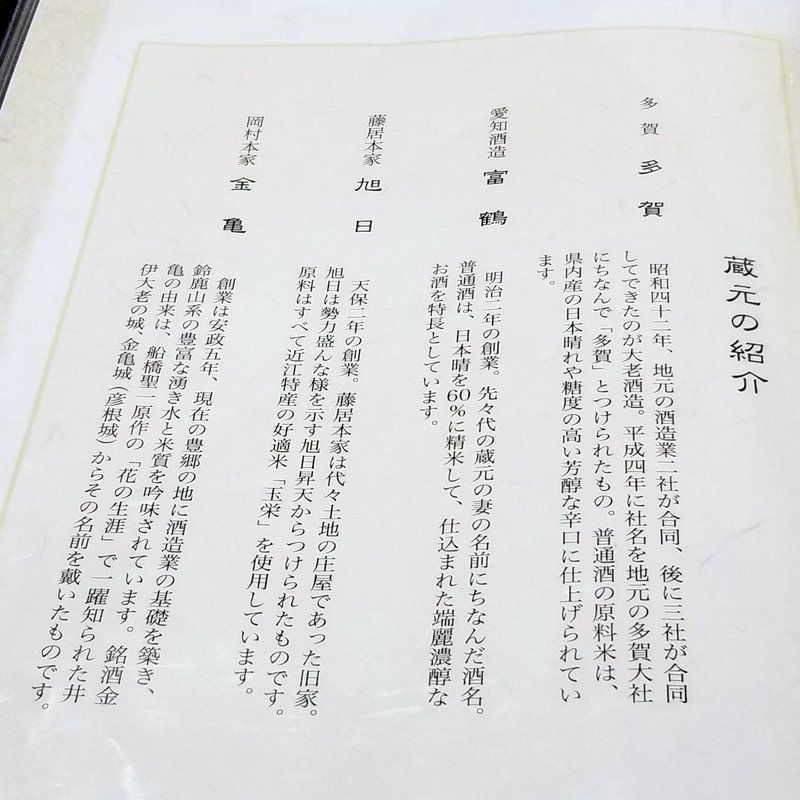 蔵元の紹介
多賀 多賀
昭和四十二年、地元の酒造業二社が合同、後に三社が合同
してできたのが大老酒造。平成四年に社名を地元の多賀大社
にちなんで「多賀」とつけられたもの。普通酒の原料米は、
県内産の日本晴れや糖度の高い芳醇な辛口に仕上げられてい
ます。
愛知酒造 富鶴
明治二年の創業。先々代の蔵元の妻の名前にちなんだ酒名。
普通酒は、日本晴を60%に精米して、仕込まれた端麗濃醇な
お酒を特長としています。
藤居本家 旭日
天保二年の創業。藤居本家は代々土地の庄屋であった旧家。
旭日は勢力盛んな様を示す旭日昇天からつけられたものです。
原料はすべて近江特産の好適米「玉栄」を使用しています。
岡村本家 金亀
創業は安政五年、現在の豊郷の地に酒造業の基礎を築き、
鈴鹿山系の豊富な湧き水と米質を吟味されています。銘酒金
亀の由来は、船橋聖一原作の「花の生涯」で一躍知られた井
伊大老の城、金亀城(彦根城)からその名前を戴いたものです。